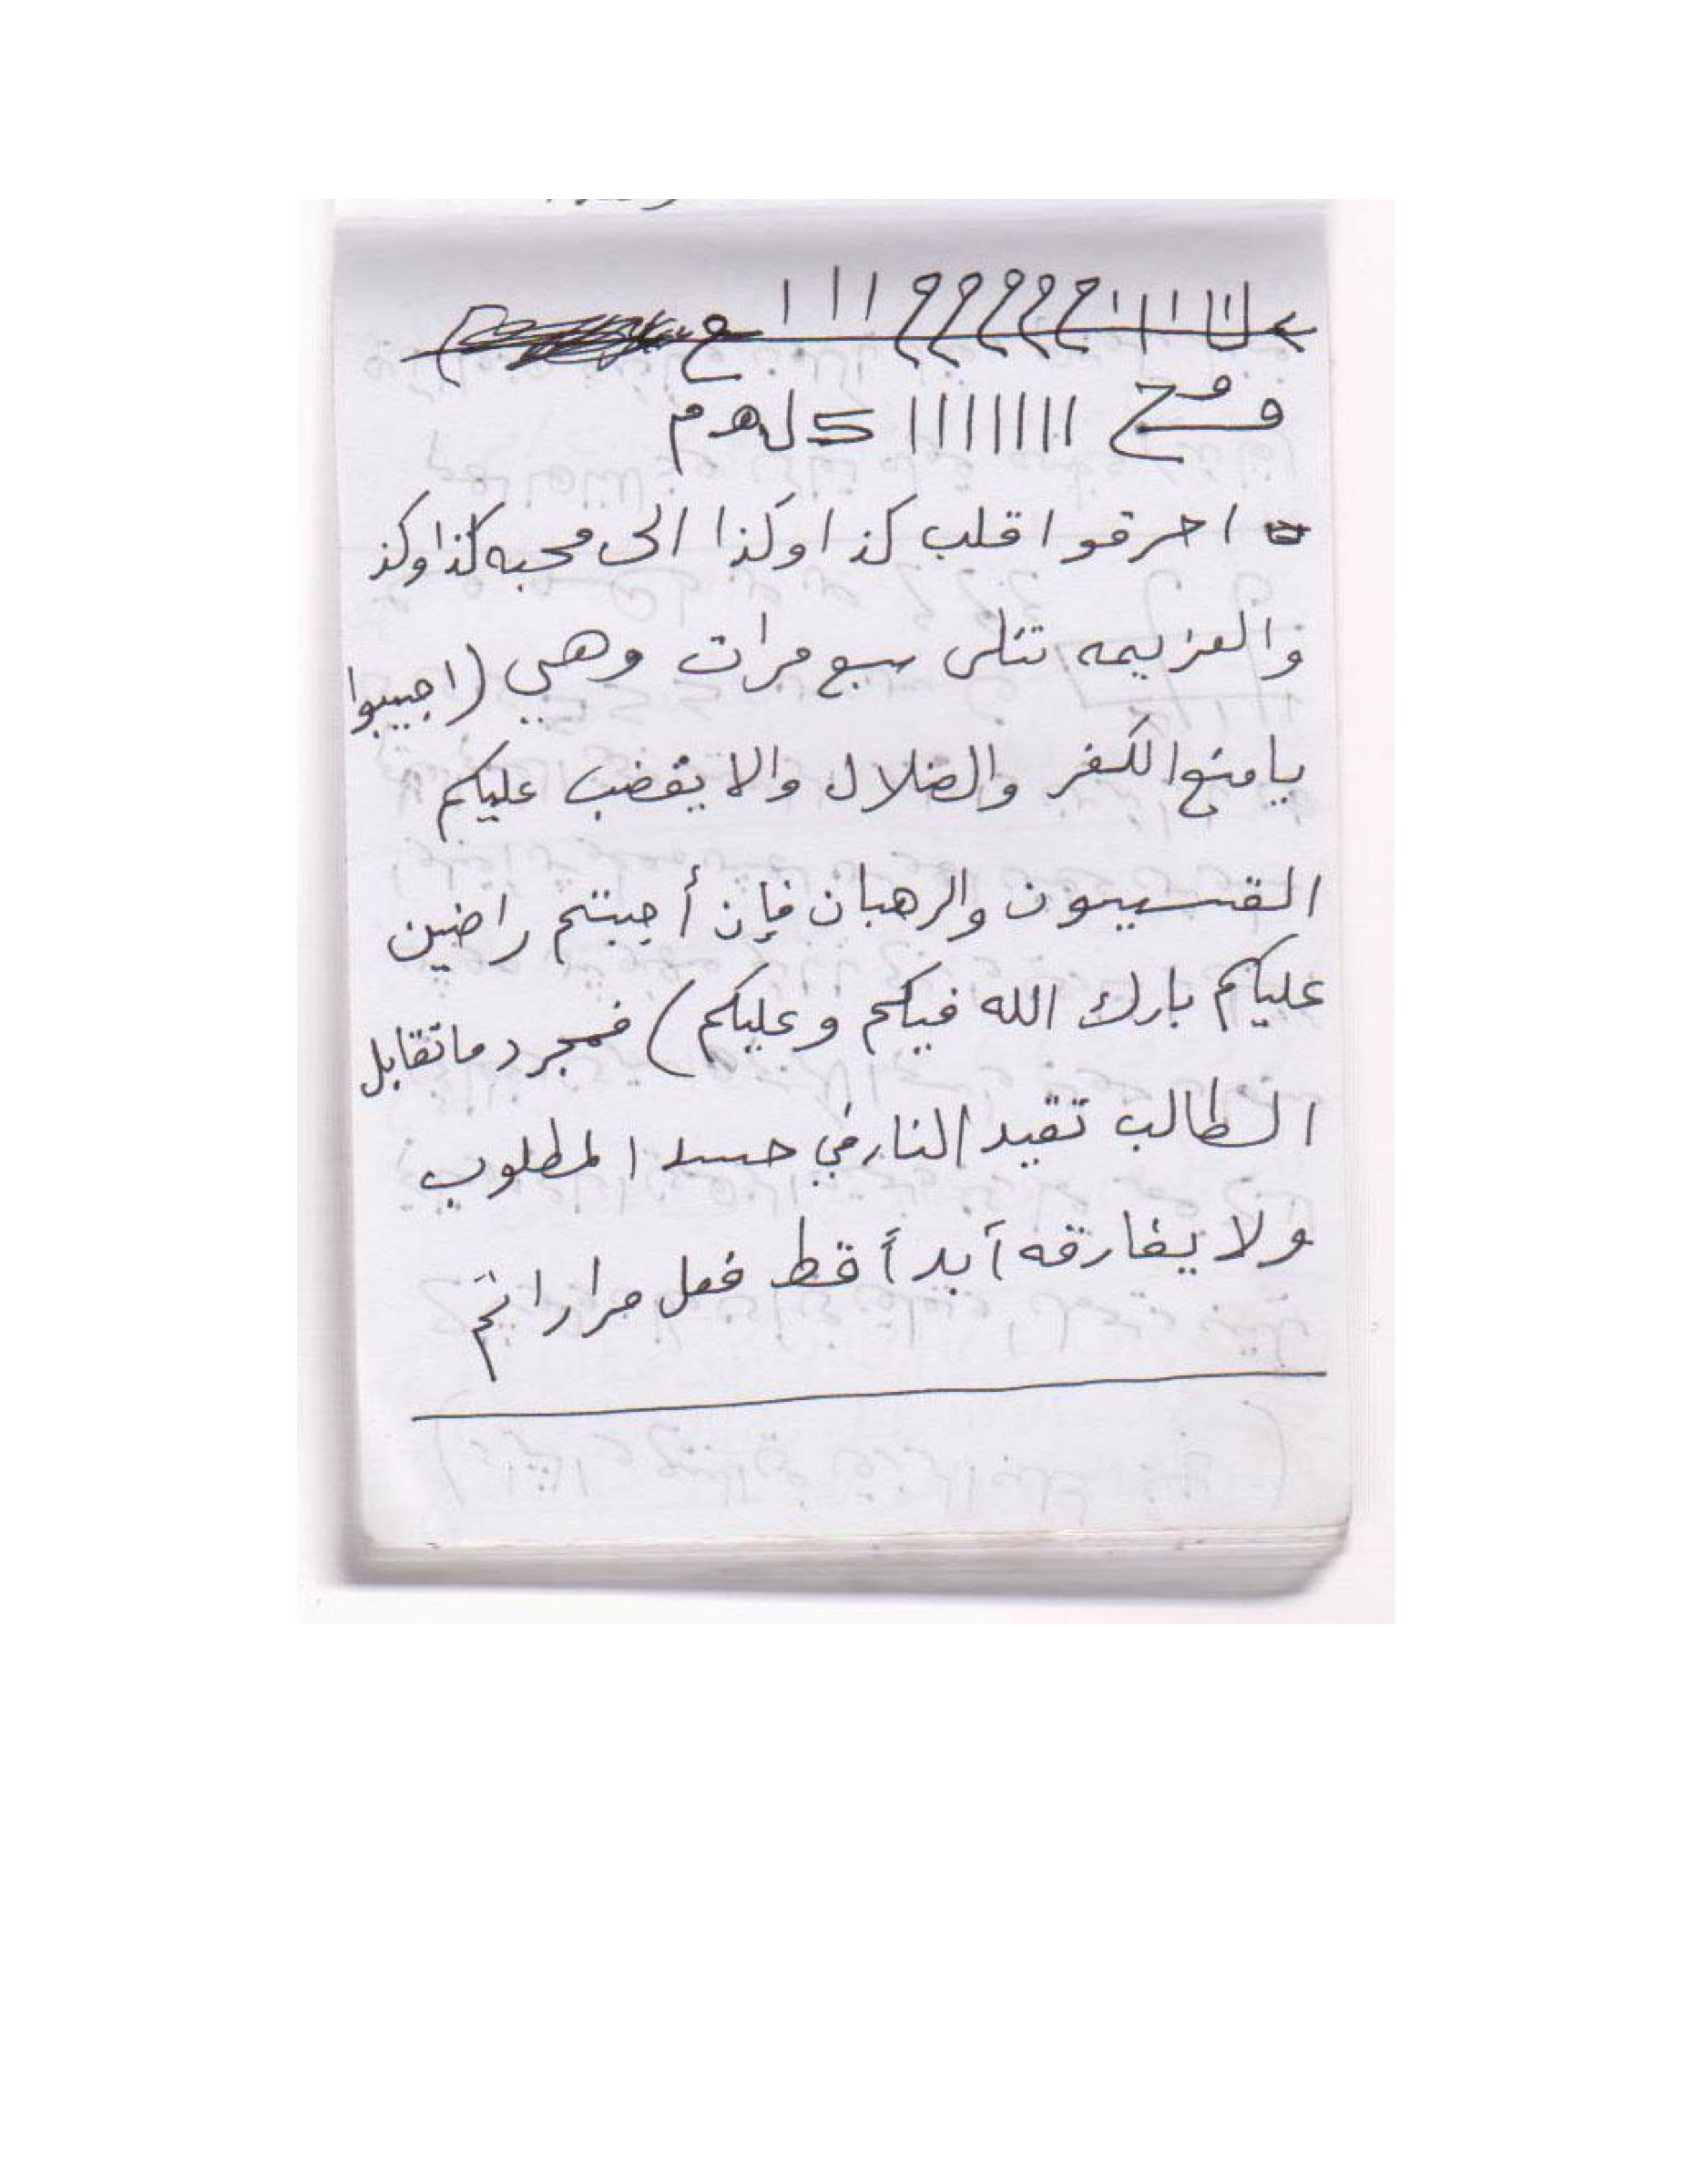 احرقوا قلب كذا وكذا الى محبه كذا وكذ
والعزيمه تتلى سبع مرات وهي (اجيبوا
يا منبع الكفر والضلال والا يغضب عليكم
القسيسون والرهبان فإن أجبتم راضين
عليكم بارك الله فيكم وعليكم) فمجرد ما تقابل
الطالب تقيد النار في جسد المطلوب
ولا يفارقه أبداً قط فعل مرارا تم